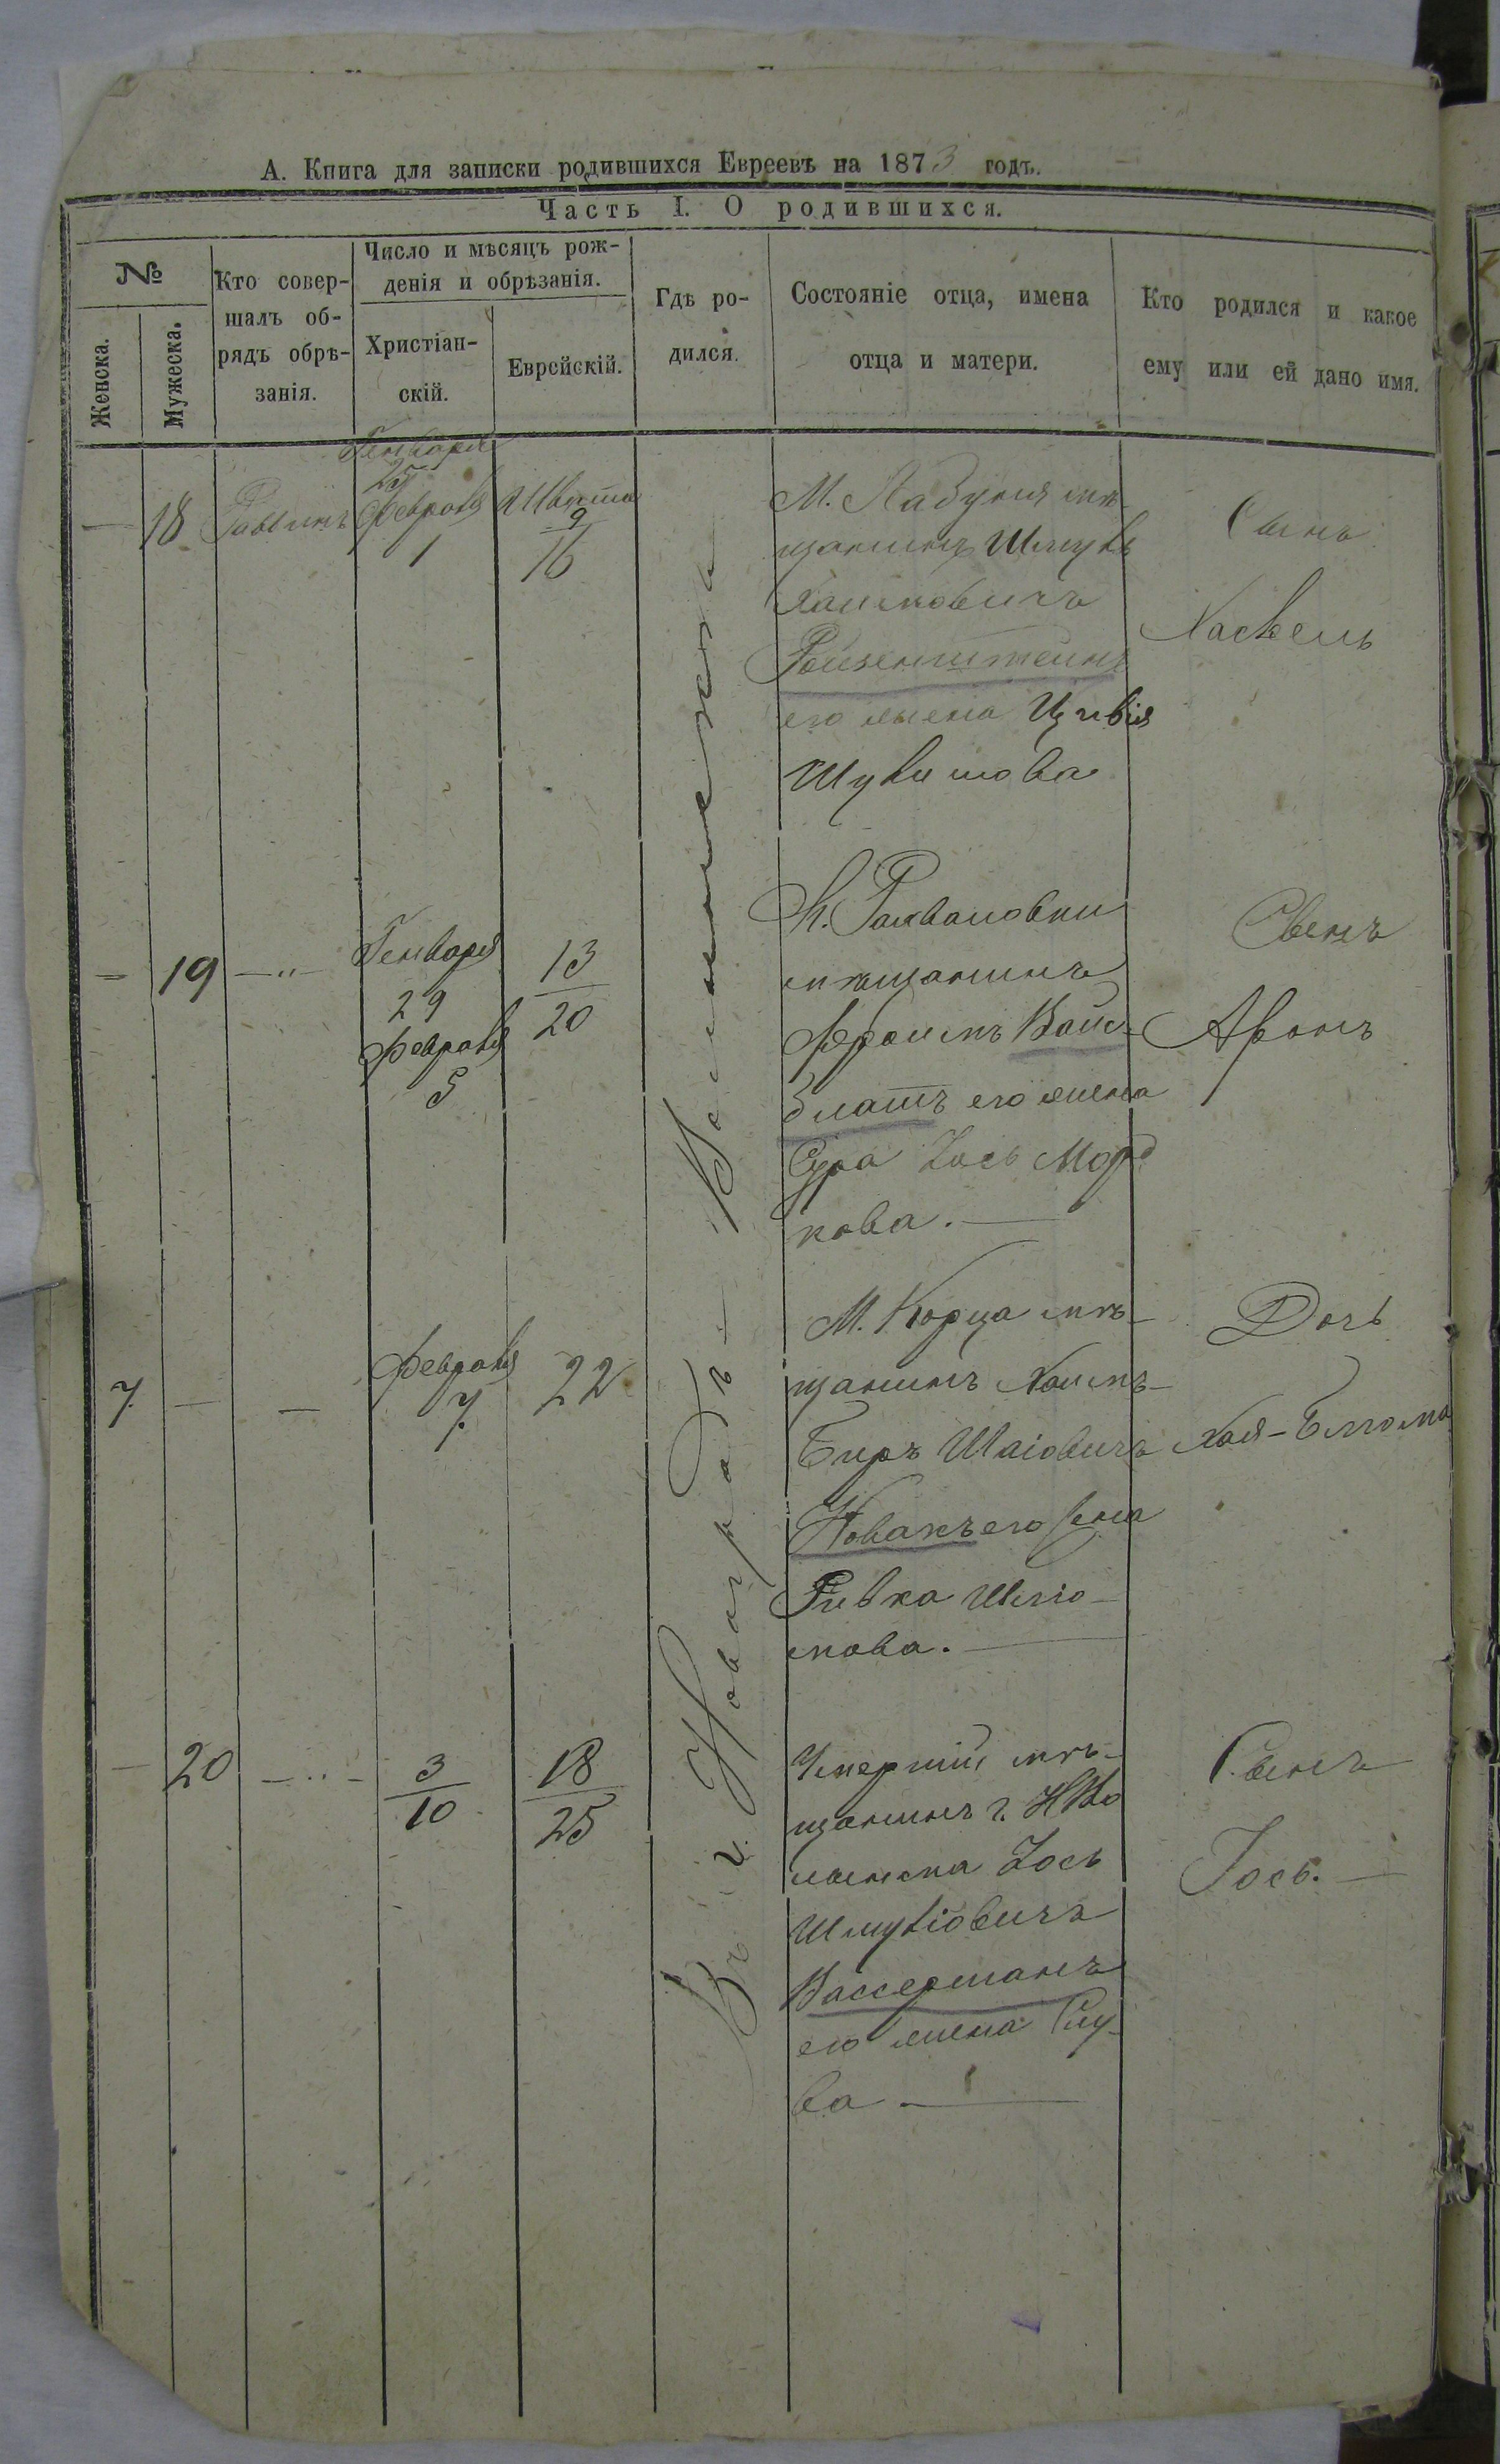 А. Книга для записки родившихся Евреевъ на 1873 годъ.
Часть I. О родившихся.
№
Женска.
Мужеска.
Кто совер-
шалъ об-
рядъ обрѣ-
занія.
Число и мѣсяцъ рож-
денія и обрѣзанія.
Христіан-
скій.
Еврейскій.
Гдѣ ро-
дился.
Состояніе отца, имена
отца и матери.
Кто родился и какое
ему или ей дано имя.
Въ г. Новоградъ-Волынскѣ
— 18
Генваря
25
Февраля
1
Швата
9
16
М. Лабуня мѣ-
щанинъ Шмуль
Хаимовичъ
Ройзенштейнъ
его жена Цивія
Шулимова
Сынъ
Хаскель
— 19 —"—
Генваря
29
Февраля
5
13
20
мѣщанинъ
Фроимъ Вайс-
блатъ его жена
Сура Іось Морд
кова. —
Сынъ
Аронъ
7. — —
Февраля
7.
22
М. Корца мѣ-
щанинъ Хаимъ-
Беръ Шаіовичъ
Новакъ его жена
Ривка Шліо-
мова. —
Дочь
Хая-Блюма
— 20 —"—
3
10
18
25
Умершій мѣ-
щанинъ г. НВо
лынска Іось
Шмуліовичъ
Вассерманъ
его жена Слу-
ва —
Сынъ
Іось. —